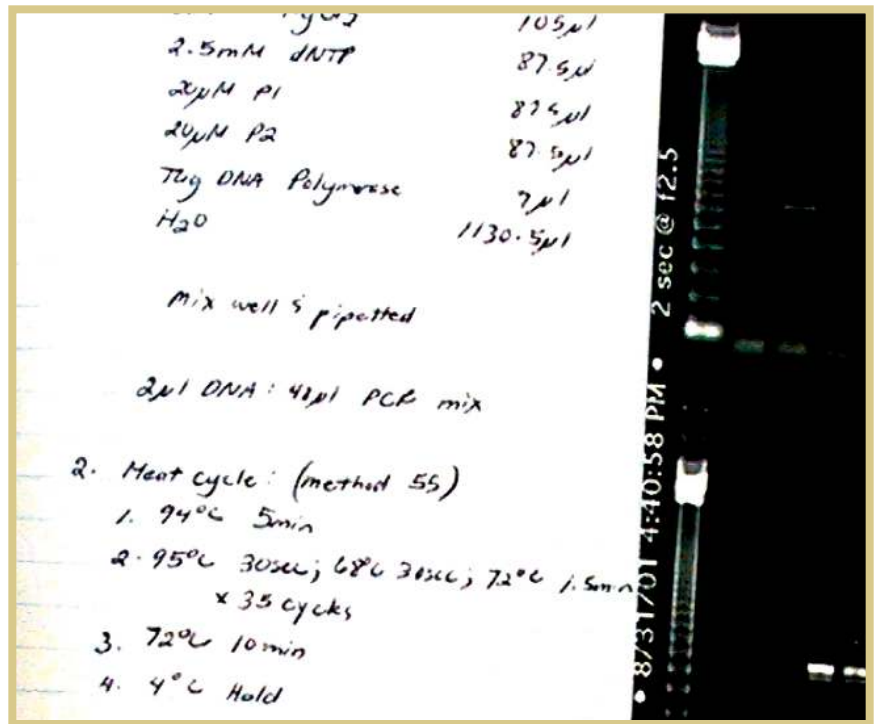 105µl
2.5mM dNTP 87.5µl
20µM P1 87.5µl
20µM P2 87.5µl
Taq DNA Polymerase 7µl
H2O 1130.5µl
Mix well & pipetted
2µl DNA : 48µl PCR mix
2. Heat cycle: (method 55)
1. 94°C 5min
2. 95°C 30sec; 68°C 30sec; 72°C 1.5min
x 35 cycles
3. 72°C 10min
4. 4°C Hold
• 8/31/01 4:40:58 PM • 2 sec @ f2.5